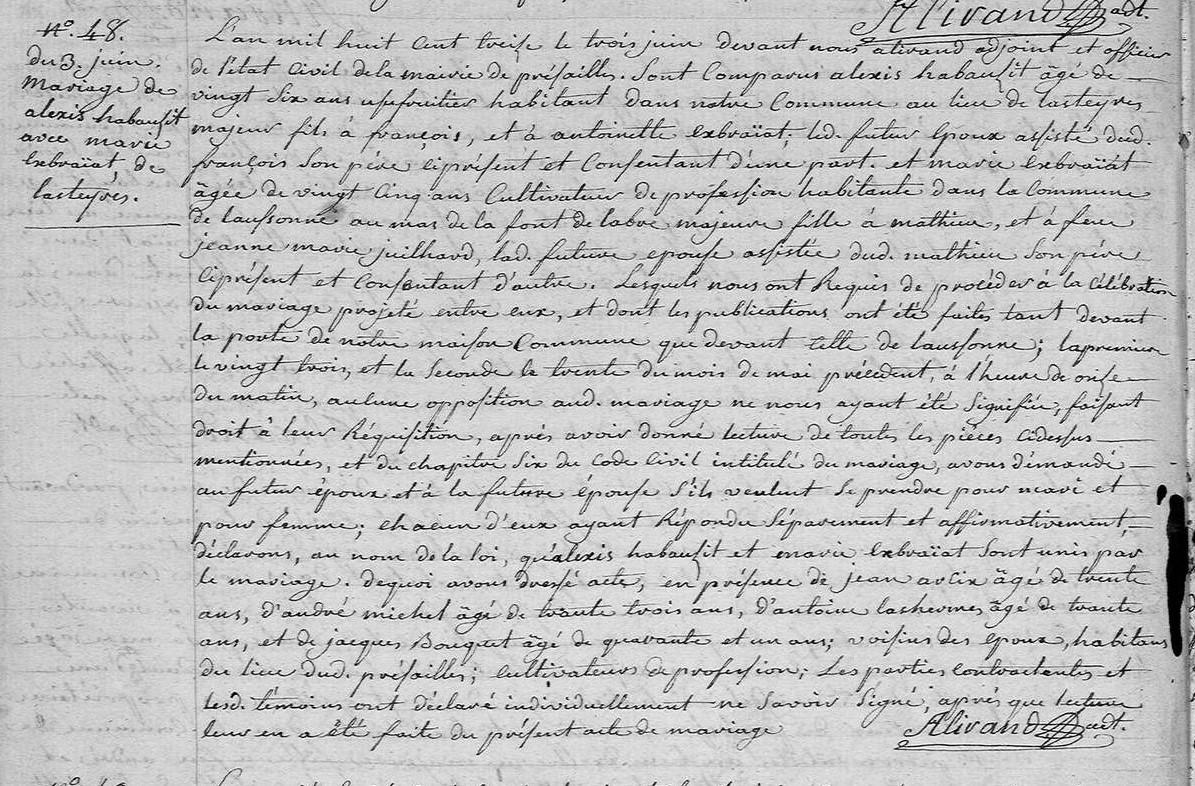 Alirand adt.
n.° 48.
du 3. juin.
mariage de
alexis habauzit
avec marie
exbraïat, de
lasteyres.
L'an mil huit cent treise le trois juin devant nous alirand adjoint et officier
de l'état civil de la mairie de présailles. Sont Comparus alexis habauzit âgé de
vingt six ans usufruitier habitant dans notre Commune au lieu de lasteyres
majeur fils à françois, et à antoinette exbraïat; led. futur Epoux assisté dud.
françois Son père ciprésent et Consentant d'une part. et marie exbraïat
âgée de vingt Cinq ans Cultivateur de profession habitante dans la Commune
de laussonne au mas de la font de labre majeure fille à mathieu, et à feue
jeanne marie juilhard, lad. future epouse assistée dud. mathieu Son père
Ciprésent et Consentant d'autre. Lesquels nous ont Requis de procéder à la Célébration
du mariage projeté entre eux, et dont les publications ont été faites tant devant
la porte de notre maison Commune que devant Celle de laussonne; la première
le vingt trois, et la Seconde le trente du mois de mai précédent, à l'heure de onse
du matin, aucune opposition aud. mariage ne nous ayant été Signifiée, faisant
droit à leur Réquisition, après avoir donné lecture de toutes les pièces cidessus
mentionnées, et du chapitre Six du Code Civil intitulé du mariage, avons démandé
au futur époux et à la future épouse S'ils veulent Se prendre pour mari et
pour femme; chacun d'eux ayant Répondu Séparement et affirmativement
déclarons, au nom de la loi, qu'alexis habauzit et marie exbraïat Sont unis par
le mariage. dequoi avons dressé acte, en présence de jean arlix âgé de trente
ans, d'andré michel âgé de trante trois ans, d'antoine lashermes, âgé de trante
ans, et de jacques Bouquet âgé de quarante et un ans; voisins des epoux, habitans
du lieu dud. présailles; cultivateurs de profession; Les parties contractantes et
lesd. témoins ont déclaré individuellement ne Savoir Signé, après que lecture
leur en a été faite du présent acte de mariage
Alirand adt.